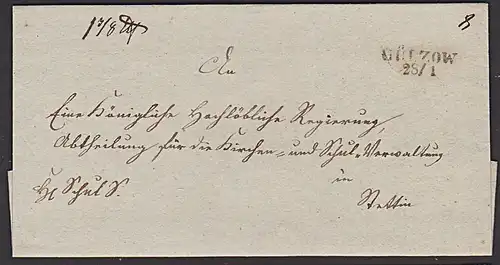 GÜLZOW
28/1
An
Eine Königliche Hochlöbliche Regierung,
Abtheilung für die Kirchen- und Schul-Verwaltung
in
Schul S. Stettin